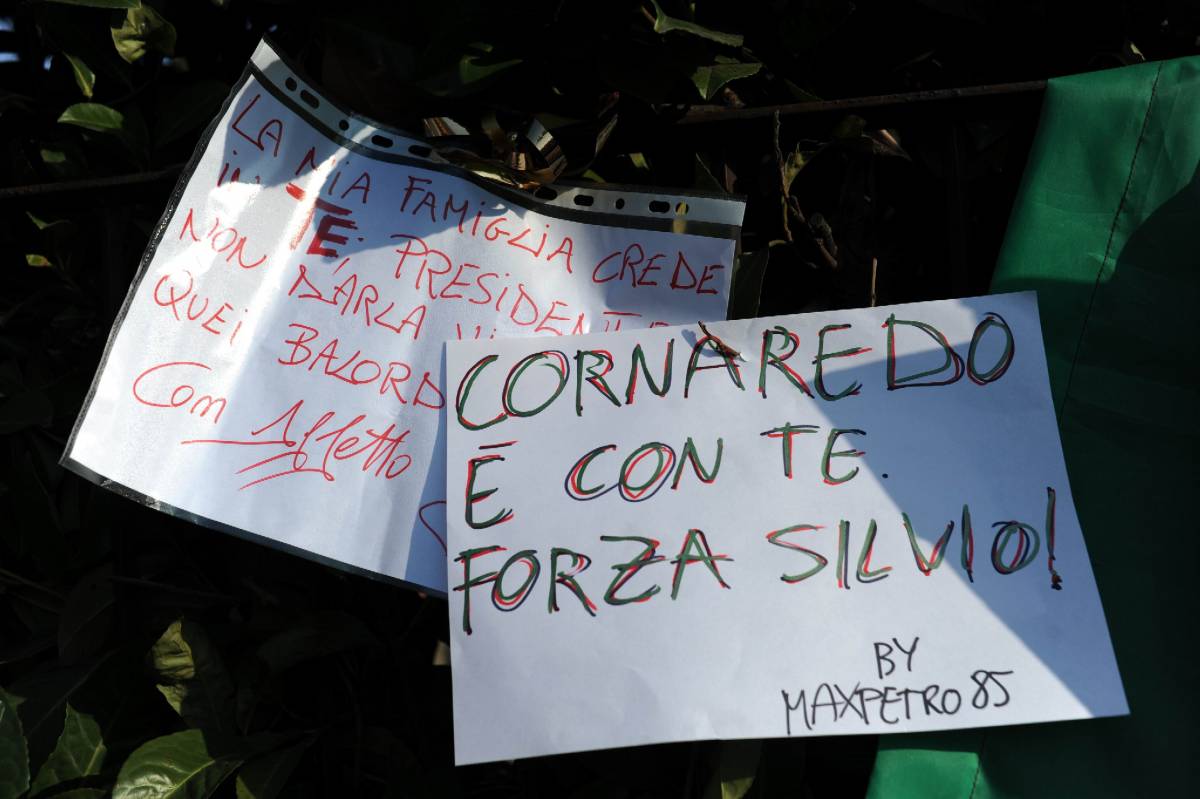 LA MIA FAMIGLIA CREDE
IN TE, PRESIDENTE
NON DARLA
QUEI BALORD
Con Affetto
CORNAREDO
È CON TE.
FORZA SILVIO!
BY
MAXPETRO85